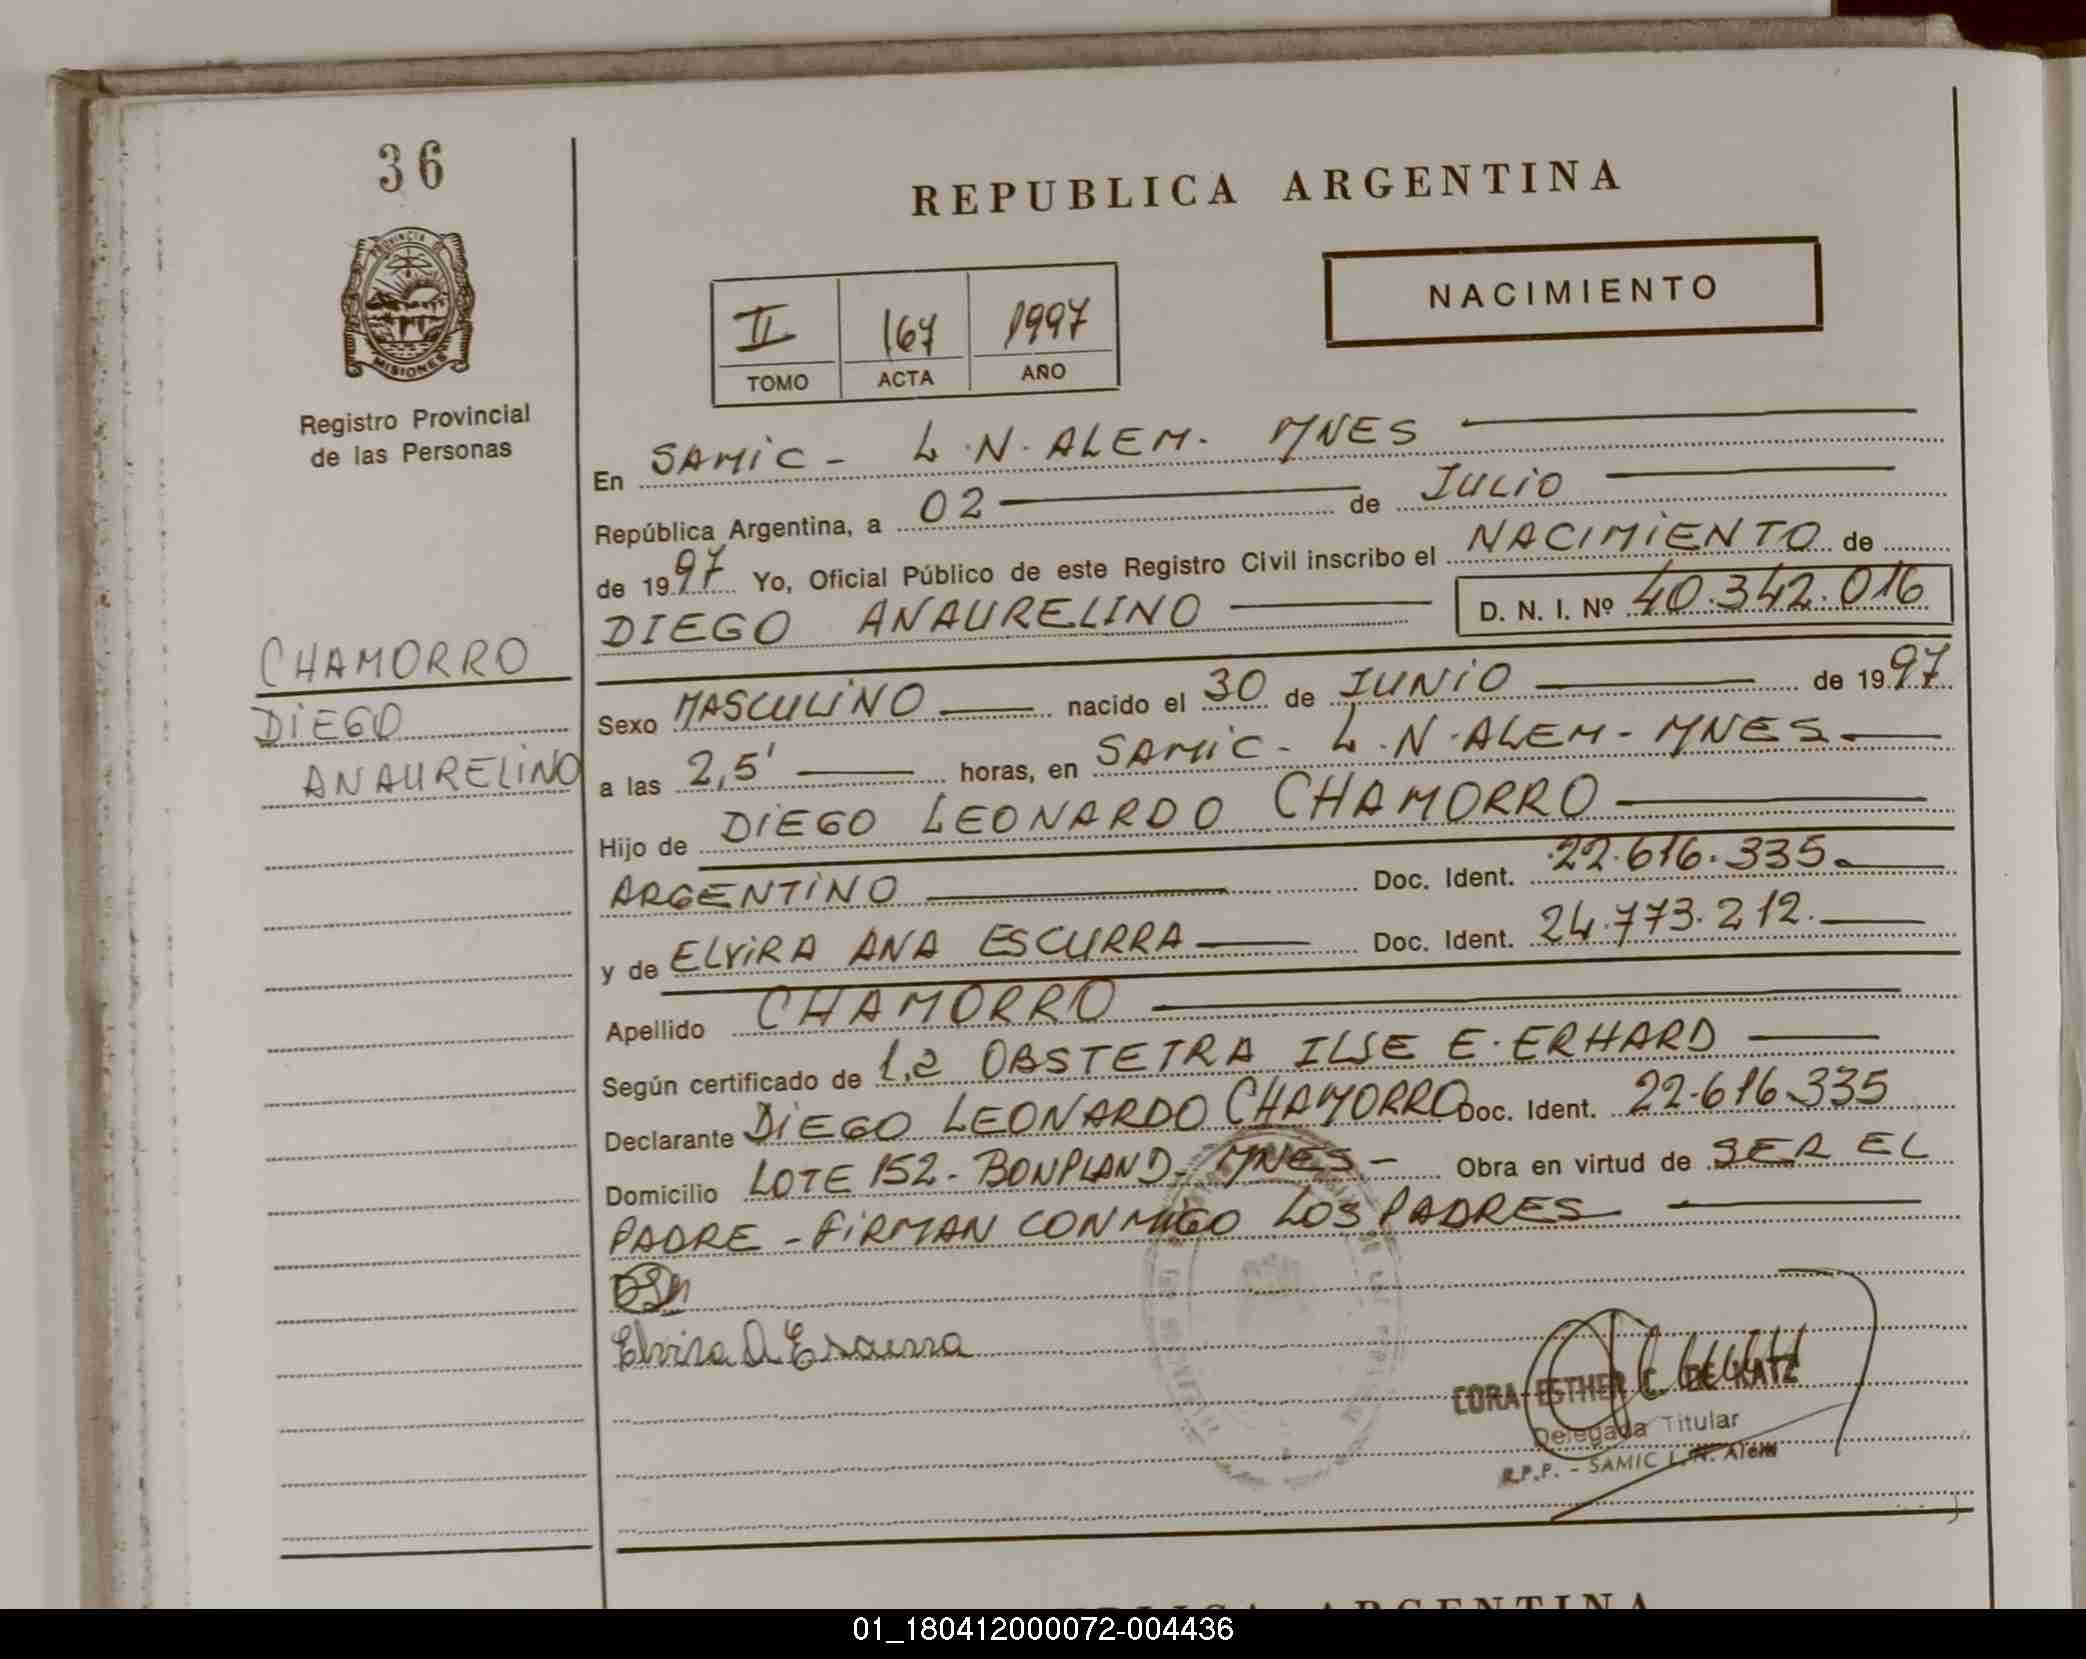 36
PROVINCIA DE
MISIONES
Registro Provincial
de las Personas
CHAMORRO
DIEGO
ANAURELINO
REPUBLICA ARGENTINA
NACIMIENTO
II 167 1997
TOMO ACTA AÑO
En SAMIC - L.N. ALEM - MNES
República Argentina, a 02 de JULIO
de 1997 Yo, Oficial Público de este Registro Civil inscribo el NACIMIENTO de
DIEGO ANAURELINO D. N. I. Nº 40.342.016
Sexo MASCULINO nacido el 30 de JUNIO de 1997
a las 2,5' horas, en SAMIC - L.N. ALEM - MNES
Hijo de DIEGO LEONARDO CHAMORRO
ARGENTINO Doc. Ident. 22.616.335
y de ELVIRA ANA ESCURRA Doc. Ident. 24.773.212.
Apellido CHAMORRO
Según certificado de OBSTETRA ILSE E. ERHARD
Declarante DIEGO LEONARDO CHAMORRO Doc. Ident. 22.616.335
Domicilio LOTE 152 - BONPLAND - MNES - Obra en virtud de SER EL
PADRE - FIRMAN CONMIGO LOS PADRES
Elvira A Escurra
CORA ESTHER C. DE KATZ
Delegada Titular
R.P.P. - SAMIC L. N. Alem
01_180412000072-004436